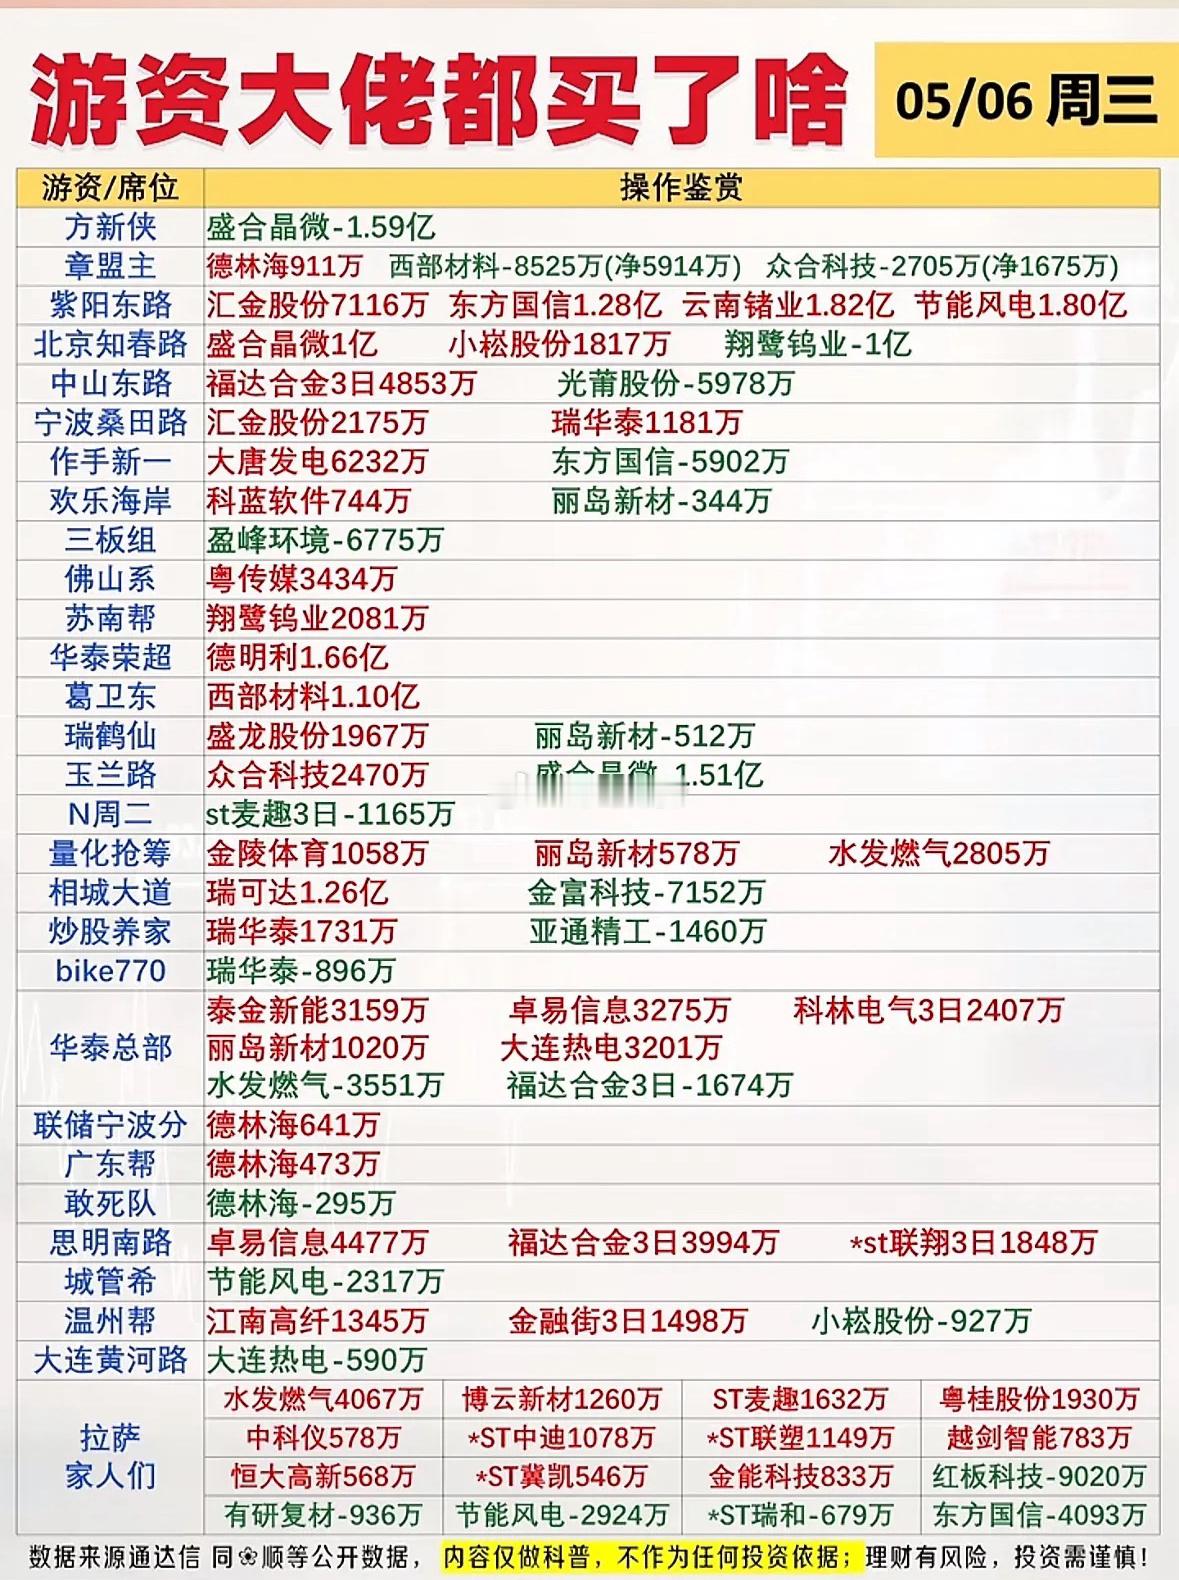 游资大佬都买了啥 05/06 周三
游资/席位 操作鉴赏
方新侠 盛合晶微-1.59亿
章盟主 德林海911万 西部材料-8525万(净5914万) 众合科技-2705万(净1675万)
紫阳东路 汇金股份7116万 东方国信1.28亿 云南锗业1.82亿 节能风电1.80亿
北京知春路 盛合晶微1亿 小崧股份1817万 翔鹭钨业-1亿
中山东路 福达合金3日4853万 光莆股份-5978万
宁波桑田路 汇金股份2175万 瑞华泰1181万
作手新一 大唐发电6232万 东方国信-5902万
欢乐海岸 科蓝软件744万 丽岛新材-344万
三板组 盈峰环境-6775万
佛山系 粤传媒3434万
苏南帮 翔鹭钨业2081万
华泰荣超 德明利1.66亿
葛卫东 西部材料1.10亿
瑞鹤仙 盛龙股份1967万 丽岛新材-512万
玉兰路 众合科技2470万 1.51亿
N周二 st麦趣3日-1165万
量化抢筹 金陵体育1058万 丽岛新材578万 水发燃气2805万
相城大道 瑞可达1.26亿 金富科技-7152万
炒股养家 瑞华泰1731万 亚通精工-1460万
bike770 瑞华泰-896万
华泰总部 泰金新能3159万 卓易信息3275万 科林电气3日2407万
丽岛新材1020万 大连热电3201万
水发燃气-3551万 福达合金3日-1674万
联储宁波分 德林海641万
广东帮 德林海473万
敢死队 德林海-295万
思明南路 卓易信息4477万 福达合金3日3994万 *st联翔3日1848万
城管希 节能风电-2317万
温州帮 江南高纤1345万 金融街3日1498万 小崧股份-927万
大连黄河路 大连热电-590万
拉萨
家人们
水发燃气4067万 博云新材1260万 ST麦趣1632万 粤桂股份1930万
中科仪578万 *ST中迪1078万 *ST联塑1149万 越剑智能783万
恒大高新568万 *ST冀凯546万 金能科技833万 红板科技-9020万
有研复材-936万 节能风电-2924万 *ST瑞和-679万 东方国信-4093万
数据来源通达信 同顺等公开数据，内容仅做科普，不作为任何投资依据；理财有风险，投资需谨慎！